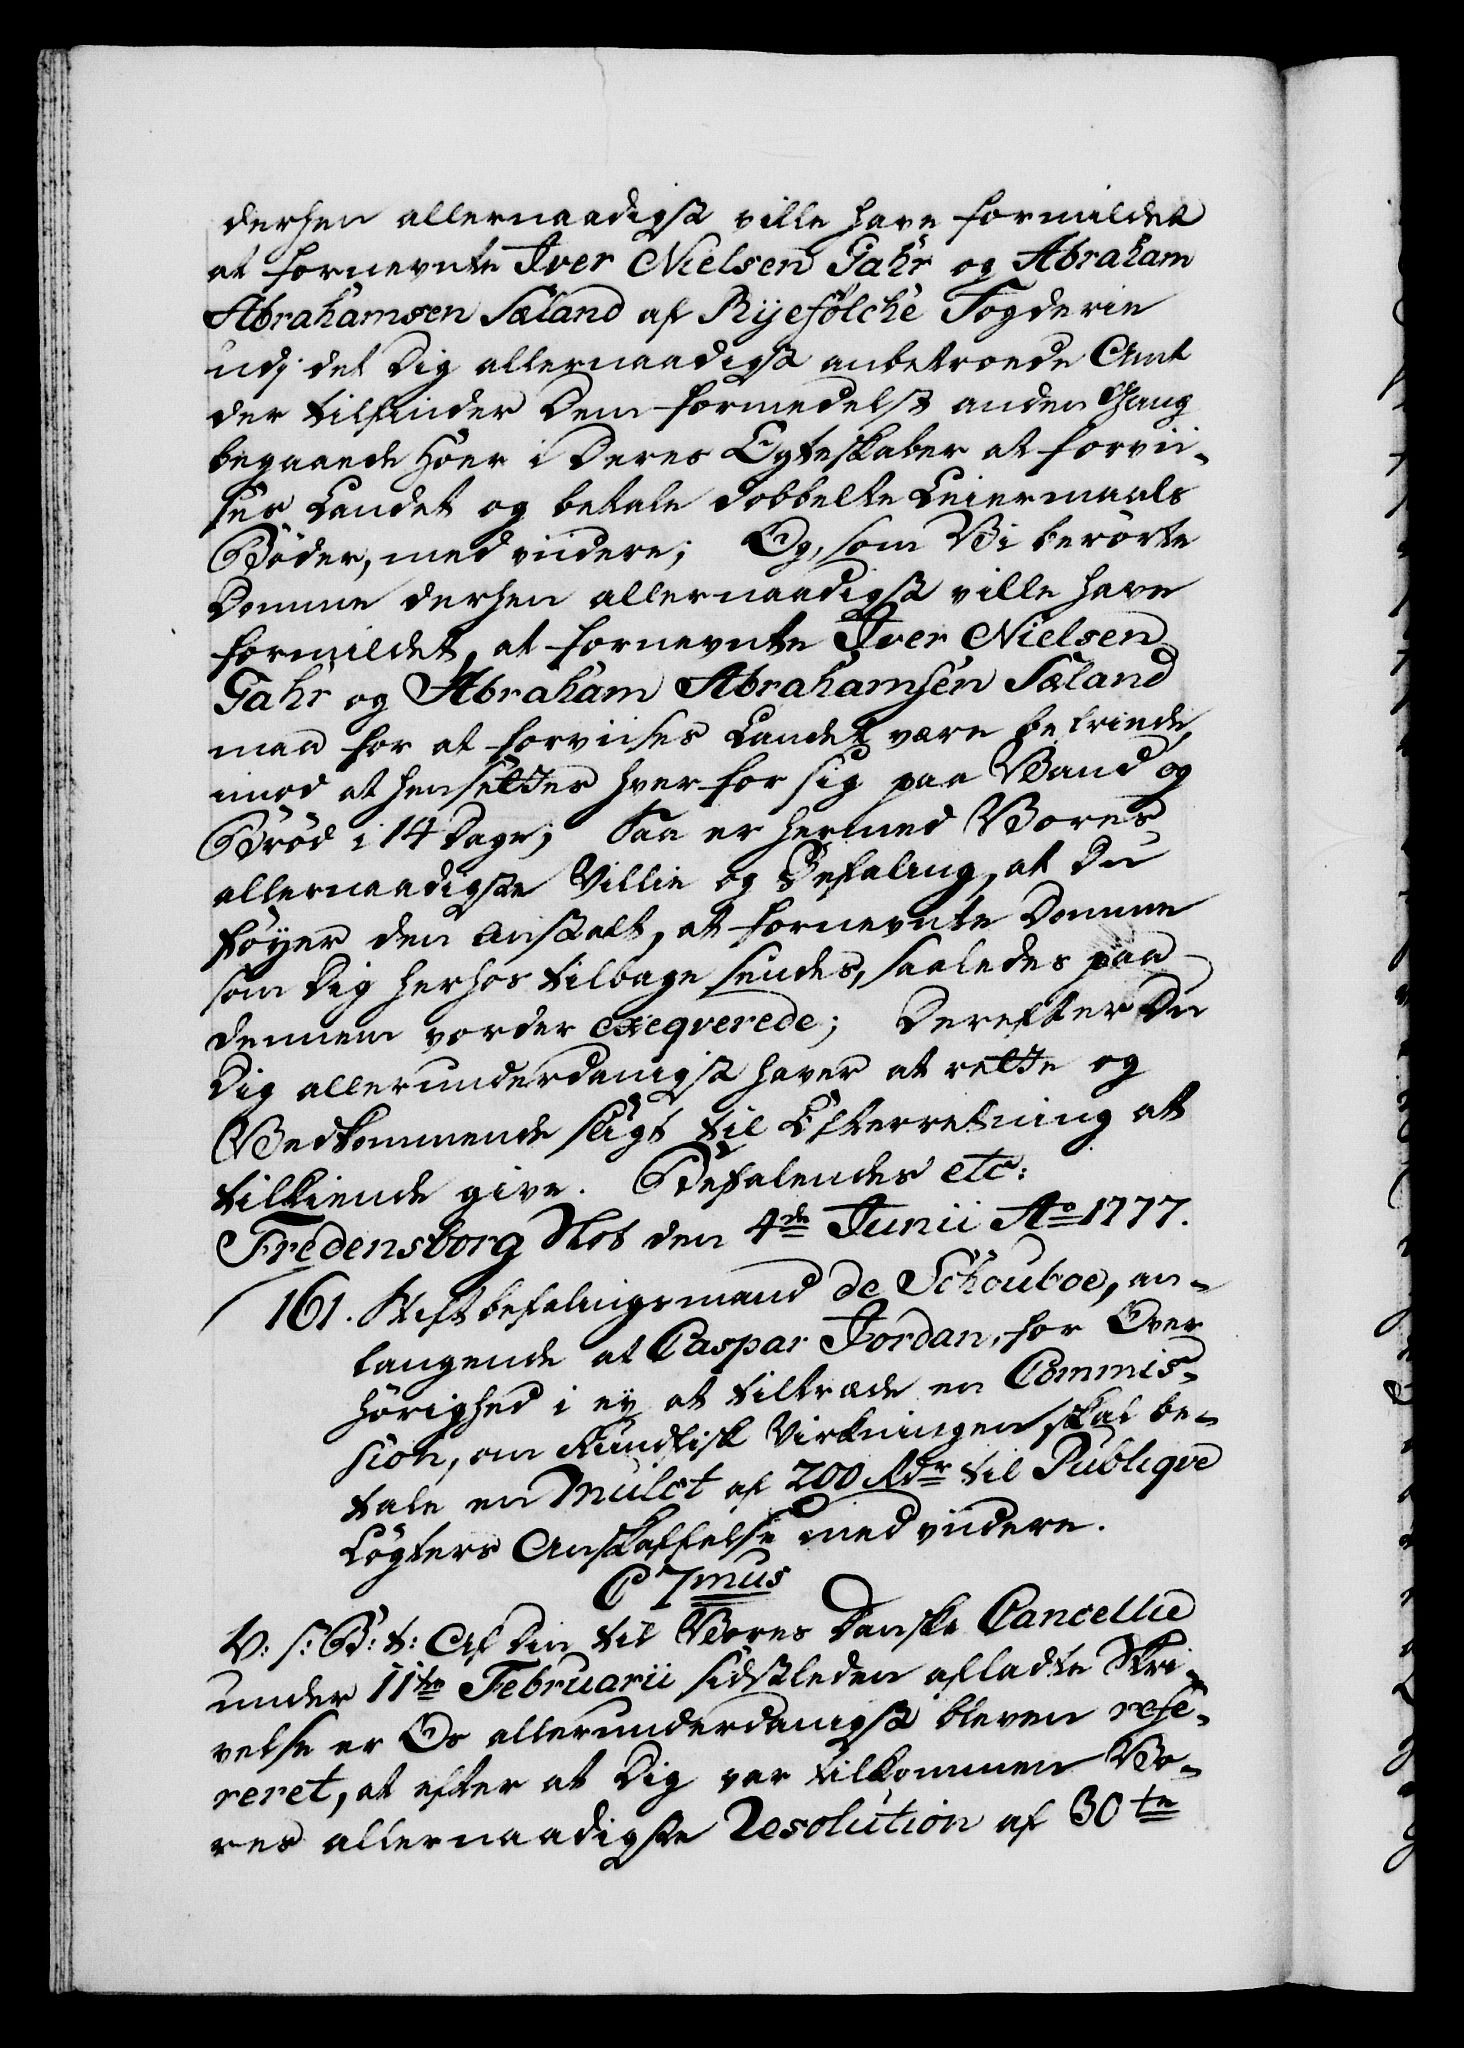 derhen allernaadigst ville have formildet
at fornevnte Iver Nielsen Gahr og Abraham
Abrahamsen Sæland af Ryefølche Fogderie
udj det Dig allernaadigst anbetroede Amt
der tilfinder Dem formedelst anden Gang
begaaede Hoer i Deres Egteskaber at forvii-
ses Landet og betale dobbelte Leiermaals
Bøder, med viidere; Og, som Vi berørte
Domme derhen allernaadigst ville have
formildet, at fornevnte Iver Nielsen
Gahr og Abraham Abrahamsen Sæland
maa for at forviises Landet være befriede,
imod at hensettes hver for sig paa Vand og
Brød i 14 Dage; Saa er hermed Vores
allernaadigste Villie og Befaling, at Du
føyer den Anstalt, at fornevnte Domme
som Dig herhos tilbage sendes, saaledes paa
dennem vorder exeqverede; Derefter Du
Dig allerunderdanigst haver at rette og
Vedkommende sligt til Efterretning at
tilkiende give. Befalendes etc:
Fredensborg Slot den 4de Junii Ao 1777.
161. Stiftbefalingsmand de Schouboe, an-
langende at Caspar Jordan, for Over
hørighed i ey at tiltræde en Commis-
sion, om Klindfisk Virkningen, skal be-
tale en Mulct af 200 Rdr til Publiqve
Løgters Anskaffelse med viidere.
C 7mus
V: s: G: t: Af Din til Vores Danske Cancellie
under 11te Februarii sidstleden afladte Skri-
velse er Os allerunderdanigst bleven refe-
reret, at efter at Dig var tilkommen Vo-
res allernaadigste Resolution af 30te